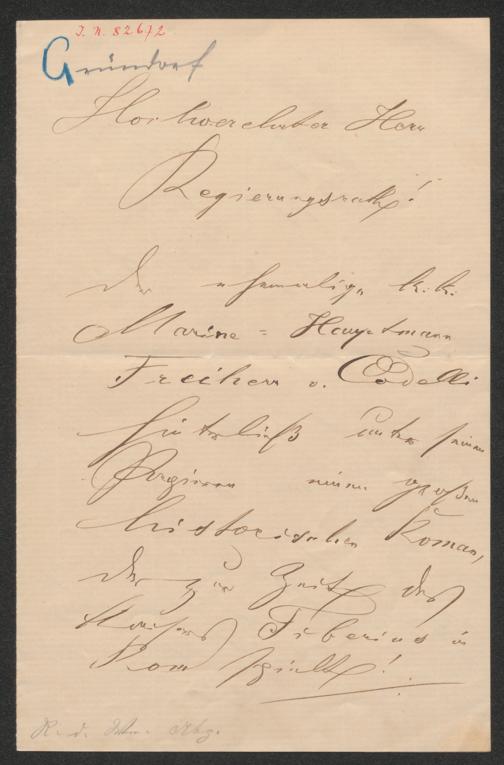 I. N. 82672
Gründorf
Hochverehrter Herr
Regierungsrath!
Der ehemalige k. k.
Marine-Hauptmann
Freiherr v. Codelli
hinterließ unter seinen
Papieren einen großen
historischen Roman,
der zur Zeit des
Kaisers Tiberius in
Rom spielt!